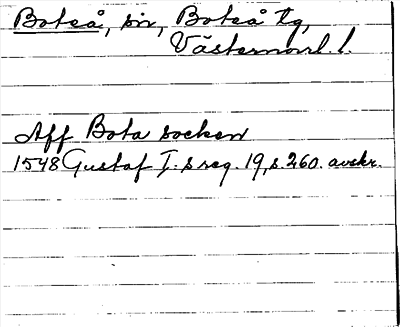 Boteå, sn, Boteå tg,
Västernorrl. l.
Aff Bota socken
1548 Gustaf I:s reg. 19, s. 260. avskr.